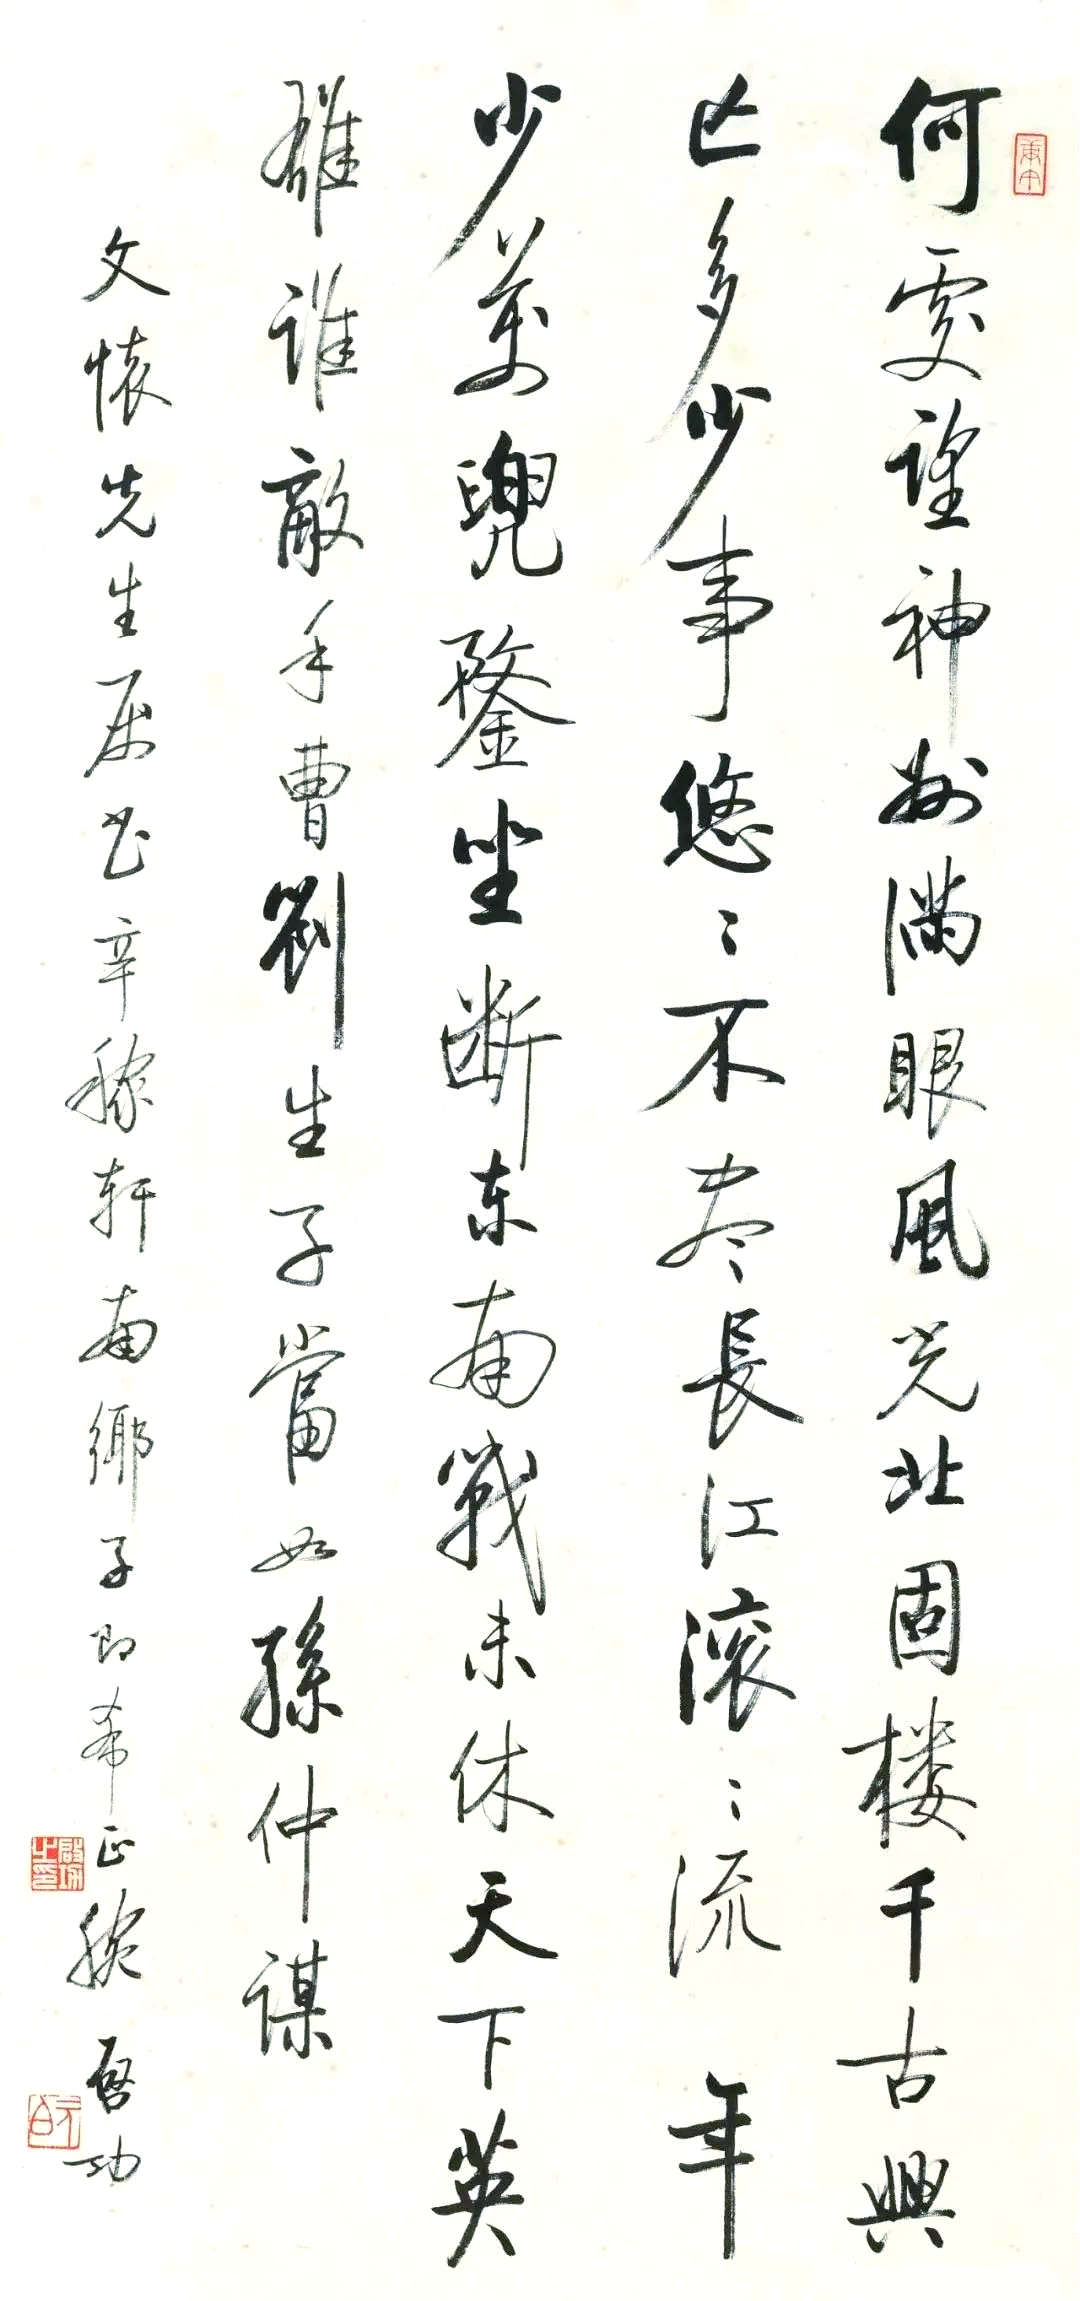 何處望神州满眼風光北固楼千古興
亡多少事悠〻不盡長江滚〻流年
少萬兜鍪坐断东南戰未休天下英
雄誰敵手曹劉生子當如孫仲謀
文懷先生属书辛稼軒南鄉子即希正腕啓功
啟功之印
元白